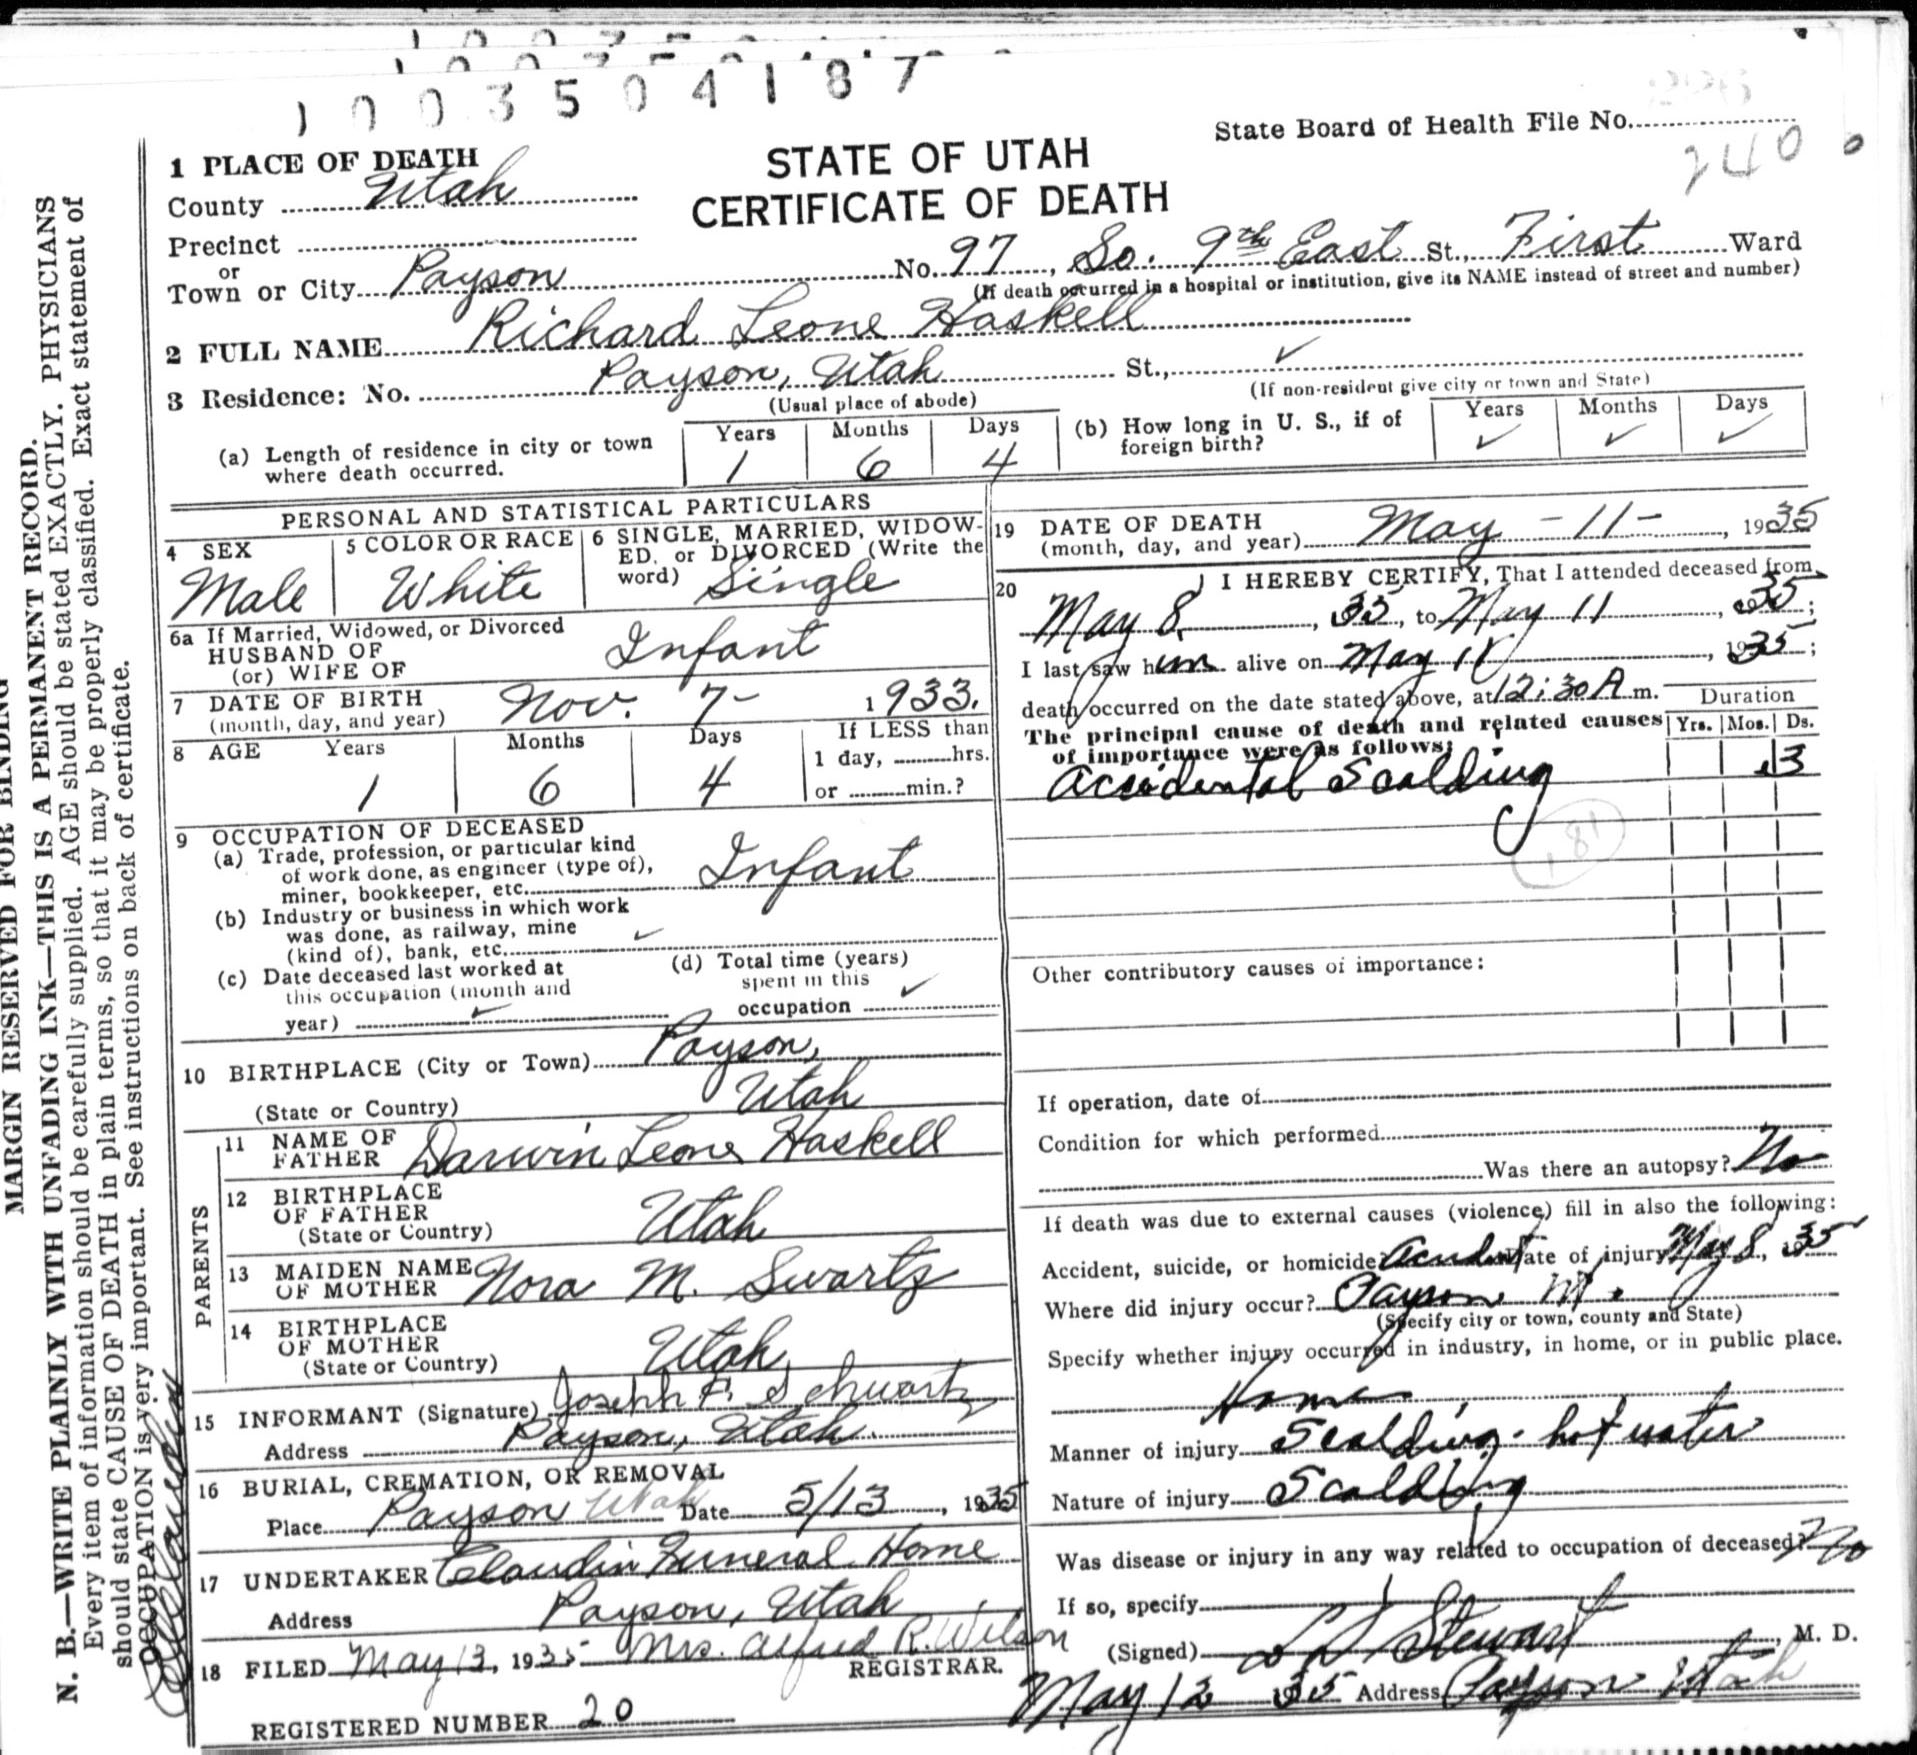 1003504187
State Board of Health File No.
240
STATE OF UTAH
CERTIFICATE OF DEATH
1 PLACE OF DEATH
County Utah
Precinct
or
Town or City Payson No. 97, So. 9th East St., First Ward
(If death occurred in a hospital or institution, give its NAME instead of street and number)
2 FULL NAME Richard Leone Haskell
3 Residence: No. Payson, Utah St.,
(Usual place of abode) (If non-resident give city or town and State)
(a) Length of residence in city or town where death occurred. Years 1 Months 6 Days 4
(b) How long in U. S., if of foreign birth? Years Months Days
PERSONAL AND STATISTICAL PARTICULARS
4 SEX Male
5 COLOR OR RACE White
6 SINGLE, MARRIED, WIDOW-
ED, or DIVORCED (Write the
word) Single
6a If Married, Widowed, or Divorced
HUSBAND OF
(or) WIFE OF Infant
7 DATE OF BIRTH
(month, day, and year) Nov. 7- 1933.
8 AGE Years 1 Months 6 Days 4 If LESS than
1 day, hrs.
or min.?
9 OCCUPATION OF DECEASED
(a) Trade, profession, or particular kind
of work done, as engineer (type of),
miner, bookkeeper, etc. Infant
(b) Industry or business in which work
was done, as railway, mine
(kind of), bank, etc.
(c) Date deceased last worked at
this occupation (month and
year)
(d) Total time (years)
spent in this
occupation
10 BIRTHPLACE (City or Town) Payson,
(State or Country) Utah
PARENTS
11 NAME OF
FATHER Darwin Leone Haskell
12 BIRTHPLACE
OF FATHER
(State or Country) Utah
13 MAIDEN NAME
OF MOTHER Nora M. Swartz
14 BIRTHPLACE
OF MOTHER
(State or Country) Utah
15 INFORMANT (Signature) Joseph F. Schwartz
Address Payson, Utah.
16 BURIAL, CREMATION, OR REMOVAL
Place Payson Utah Date 5/13, 1935
17 UNDERTAKER Claudin Funeral Home
Address Payson, Utah
18 FILED May 13, 1935 Mrs. Alfred R. Wilson
REGISTRAR.
REGISTERED NUMBER 20
19 DATE OF DEATH
(month, day, and year) May -11-, 1935
20 I HEREBY CERTIFY, That I attended deceased from
May 8, 35, to May 11, 35;
I last saw him alive on May 11, 1935;
death occurred on the date stated above, at 12:30 A m.
Duration
The principal cause of death and related causes
of importance were as follows: Yrs. Mos. Ds.
Accidental Scalding 3
181
Other contributory causes of importance:
If operation, date of
Condition for which performed
Was there an autopsy? No
If death was due to external causes (violence) fill in also the following:
Accident, suicide, or homicide? Accident Date of injury May 8, 1935
Where did injury occur? Payson Ut.
(Specify city or town, county and State)
Specify whether injury occurred in industry, in home, or in public place.
Home
Manner of injury Scalding - hot water
Nature of injury Scalding
Was disease or injury in any way related to occupation of deceased? No
If so, specify
(Signed) L D Stewart, M. D.
May 12 1935 Address Payson Utah
MARGIN RESERVED FOR BINDING
N. B.—WRITE PLAINLY WITH UNFADING INK—THIS IS A PERMANENT RECORD.
Every item of information should be carefully supplied. AGE should be stated EXACTLY. PHYSICIANS
should state CAUSE OF DEATH in plain terms, so that it may be properly classified. Exact statement of
OCCUPATION is very important. See instructions on back of certificate.